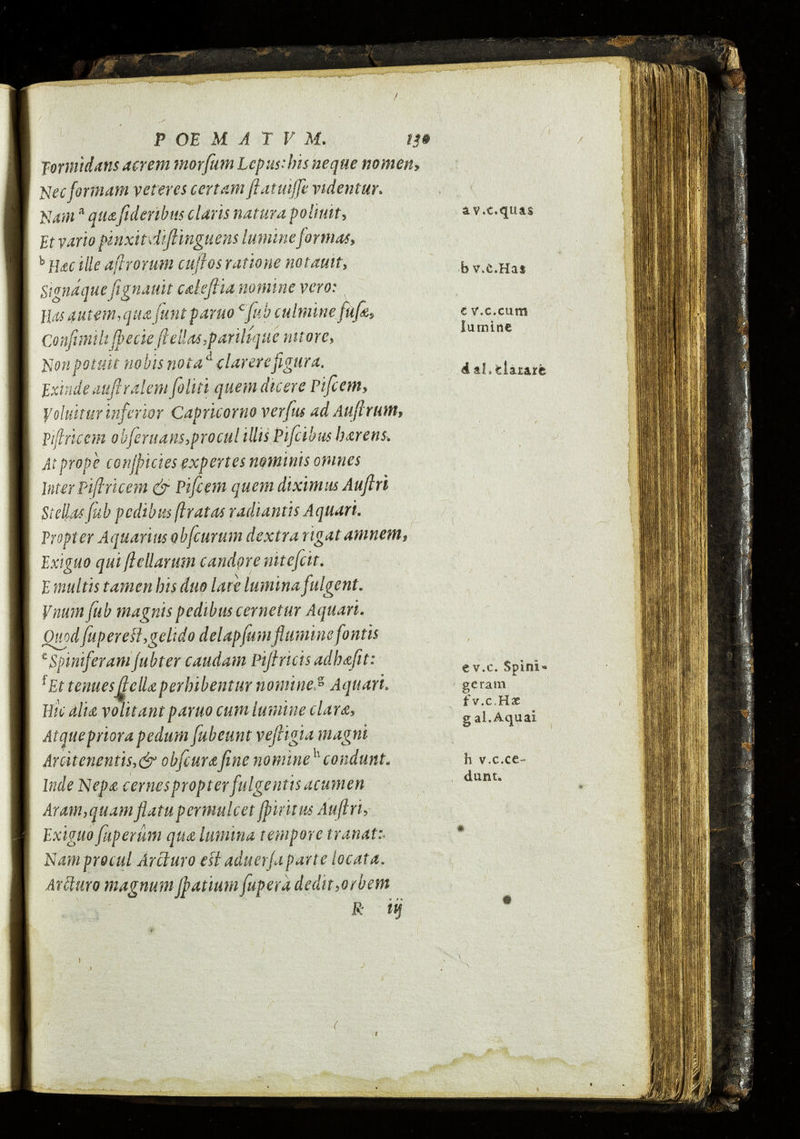 POEMATVM. 130
Formidans acrem morsum Lepus: his neque nomen,
Nec formam veteres certam statuisse videntur.
Nam ᵃ quæ sideribus claris natura poliuit,
Et vario pinxit distinguens lumine formas,
ᵇ Hæc ille astrorum custos ratione notauit,
Signáque signauit cælestia nomine vero:
Has autem, quæ sunt paruo ᶜ sub culmine fusæ,
Consimili specie stellas, parilíque nitore,
Non potuit nobis nota ᵈ clarere figura.
Exinde australem soliti quem dicere Piscem,
Voluitur inferior Capricorno versus ad Austrum,
Pistricem obseruans, procul illis Piscibus hærens.
At prope conspicies expertes nominis omnes
Inter Pistricem & Piscem quem diximus Austri
Stellas sub pedibus stratas radiantis Aquari.
Propter Aquarius obscurum dextra rigat amnem,
Exiguo qui stellarum candore nitescit.
E multis tamen his duo latè lumina fulgent.
Vnum sub magnis pedibus cernetur Aquari.
Quod superest, gelido delapsum flumine fontis
ᵉ Spiniferam subter caudam Pistricis adhæsit:
ᶠ Et tenues stellæ perhibentur nomine ᵍ Aquari.
Hic aliæ volitant paruo cum lumine claræ,
Atque priora pedum subeunt vestigia magni
Arcitenentis, & obscuræ sine nomine ʰ condunt.
Inde Nepæ cernes propter fulgentis acumen
Aram, quam flatu permulcet spiritus Austri,
Exiguo superûm quæ lumina tempore tranat:
Nam procul Arcturo est aduersa parte locata.
Arcturo magnum spatium supera dedit, orbem
R iij
a v.c. quas
b v.c. Has
c v.c. cum
lumine
d al. clarare
e v.c. Spini-
geram
f v.c. Hæ
g al. Aquai
h v.c. ce-
dunt.